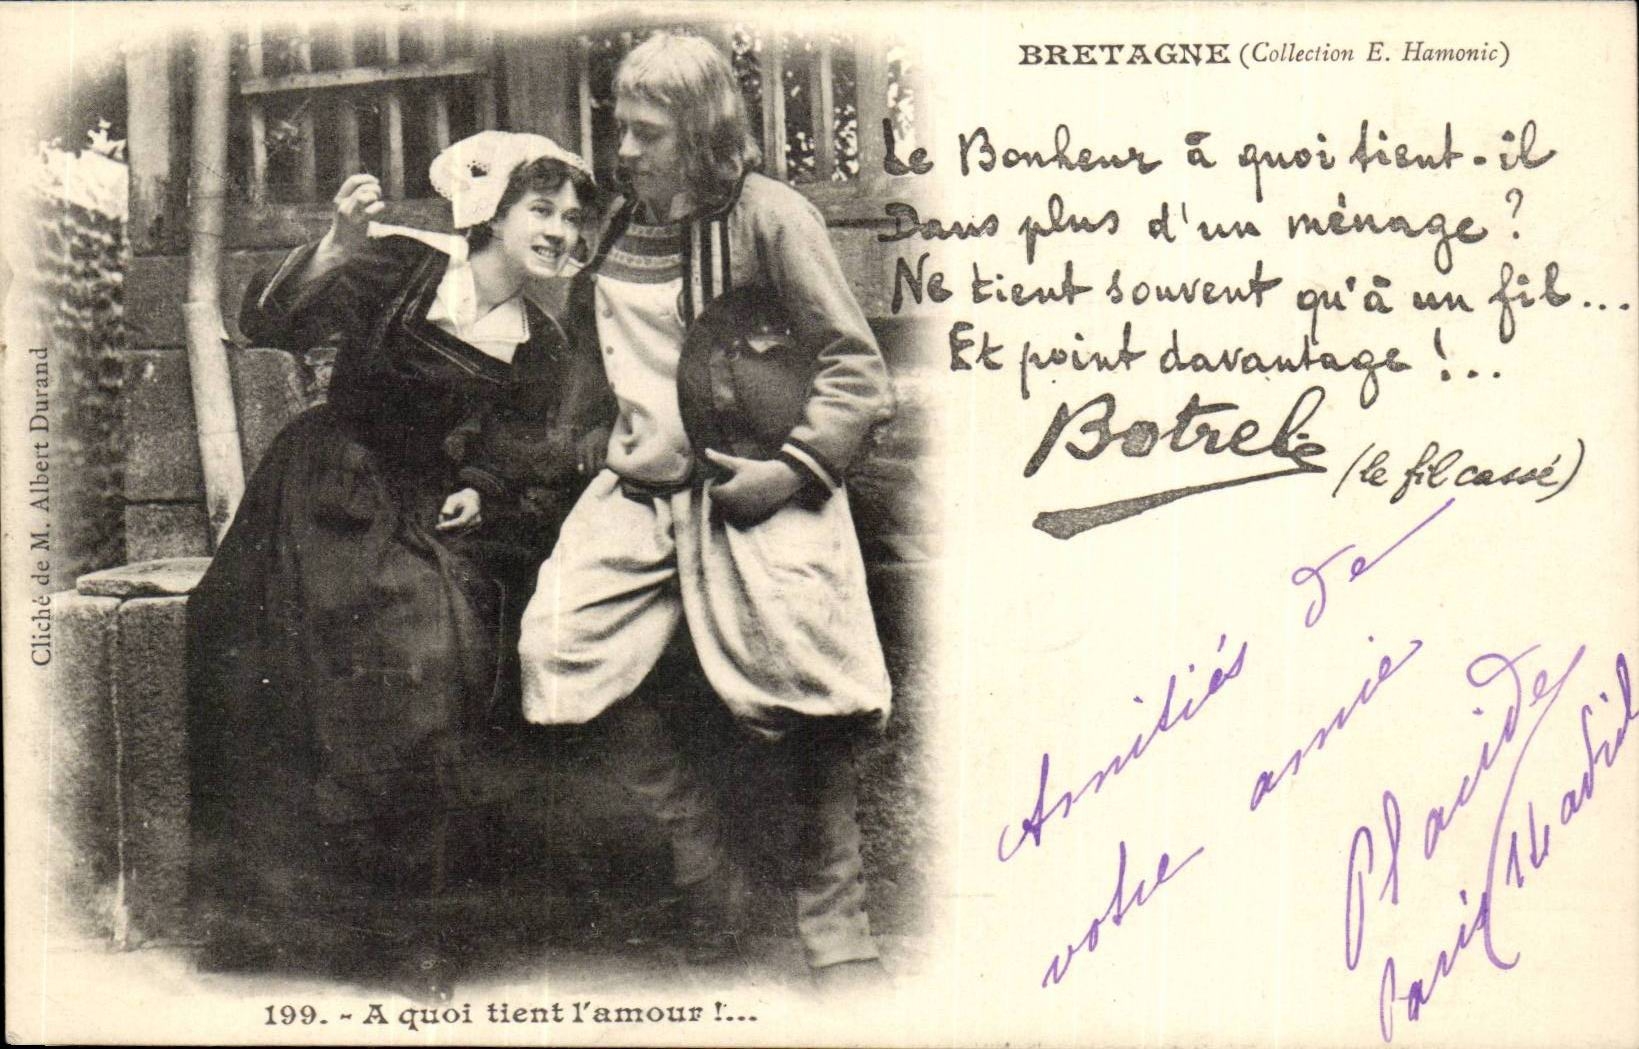 BRETAGNE (Collection E. Hamonic)
Le Bonheur à quoi tient-il
Dans plus d'un ménage ?
Ne tient souvent qu'à un fil...
Et point davantage !...
Botrel
(le fil cassé)
Amitiés de
votre amie
Placide
Paris 14 avril
Cliché de M. Albert Durand
199. - A quoi tient l'amour !...